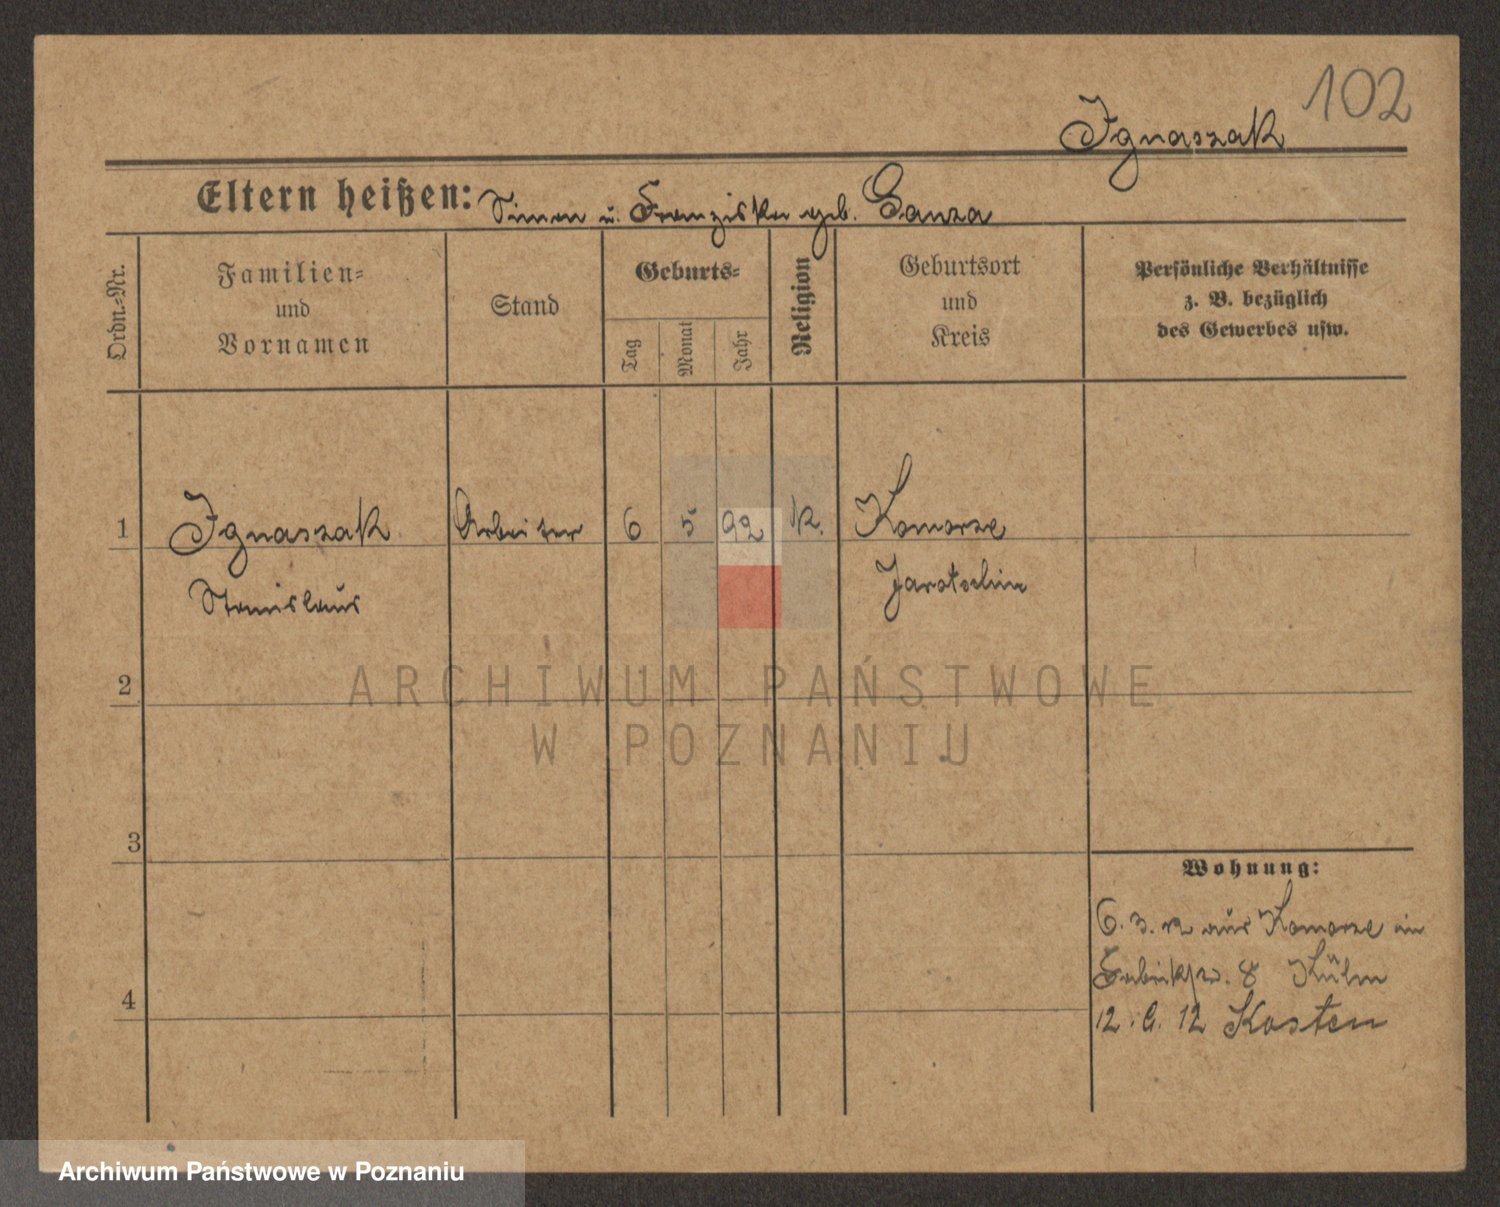 102
Ignaszak
Eltern heißen: Simon u. Franziska geb. Ganza
Ordn.-Nr.
Familien- und Vornamen
Stand
Geburts-
Tag
Monat
Jahr
Religion
Geburtsort und Kreis
Persönliche Verhältnisse
z. B. bezüglich
des Gewerbes usw.
1 Ignaszak Arbeiter 6 5 92 K. Komorze
Stanislaus Jarotschin
2
ARCHIWUM PAŃSTWOWE
W POZNANIU
3
Wohnung:
6. 3. 12 aus Komorze in
8 Külm
4
12. 6. 12 Kosten
Archiwum Państwowe w Poznaniu